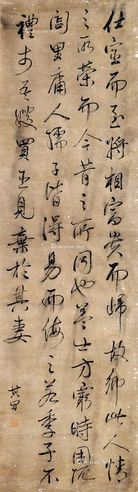 仕宦而至將相富貴而歸故鄉此人情
之所榮而今昔之所同也蓋士方窮時困阨
閭里庸人孺子皆得易而侮之若季子不
禮於其嫂買臣見棄於其妻
其昌